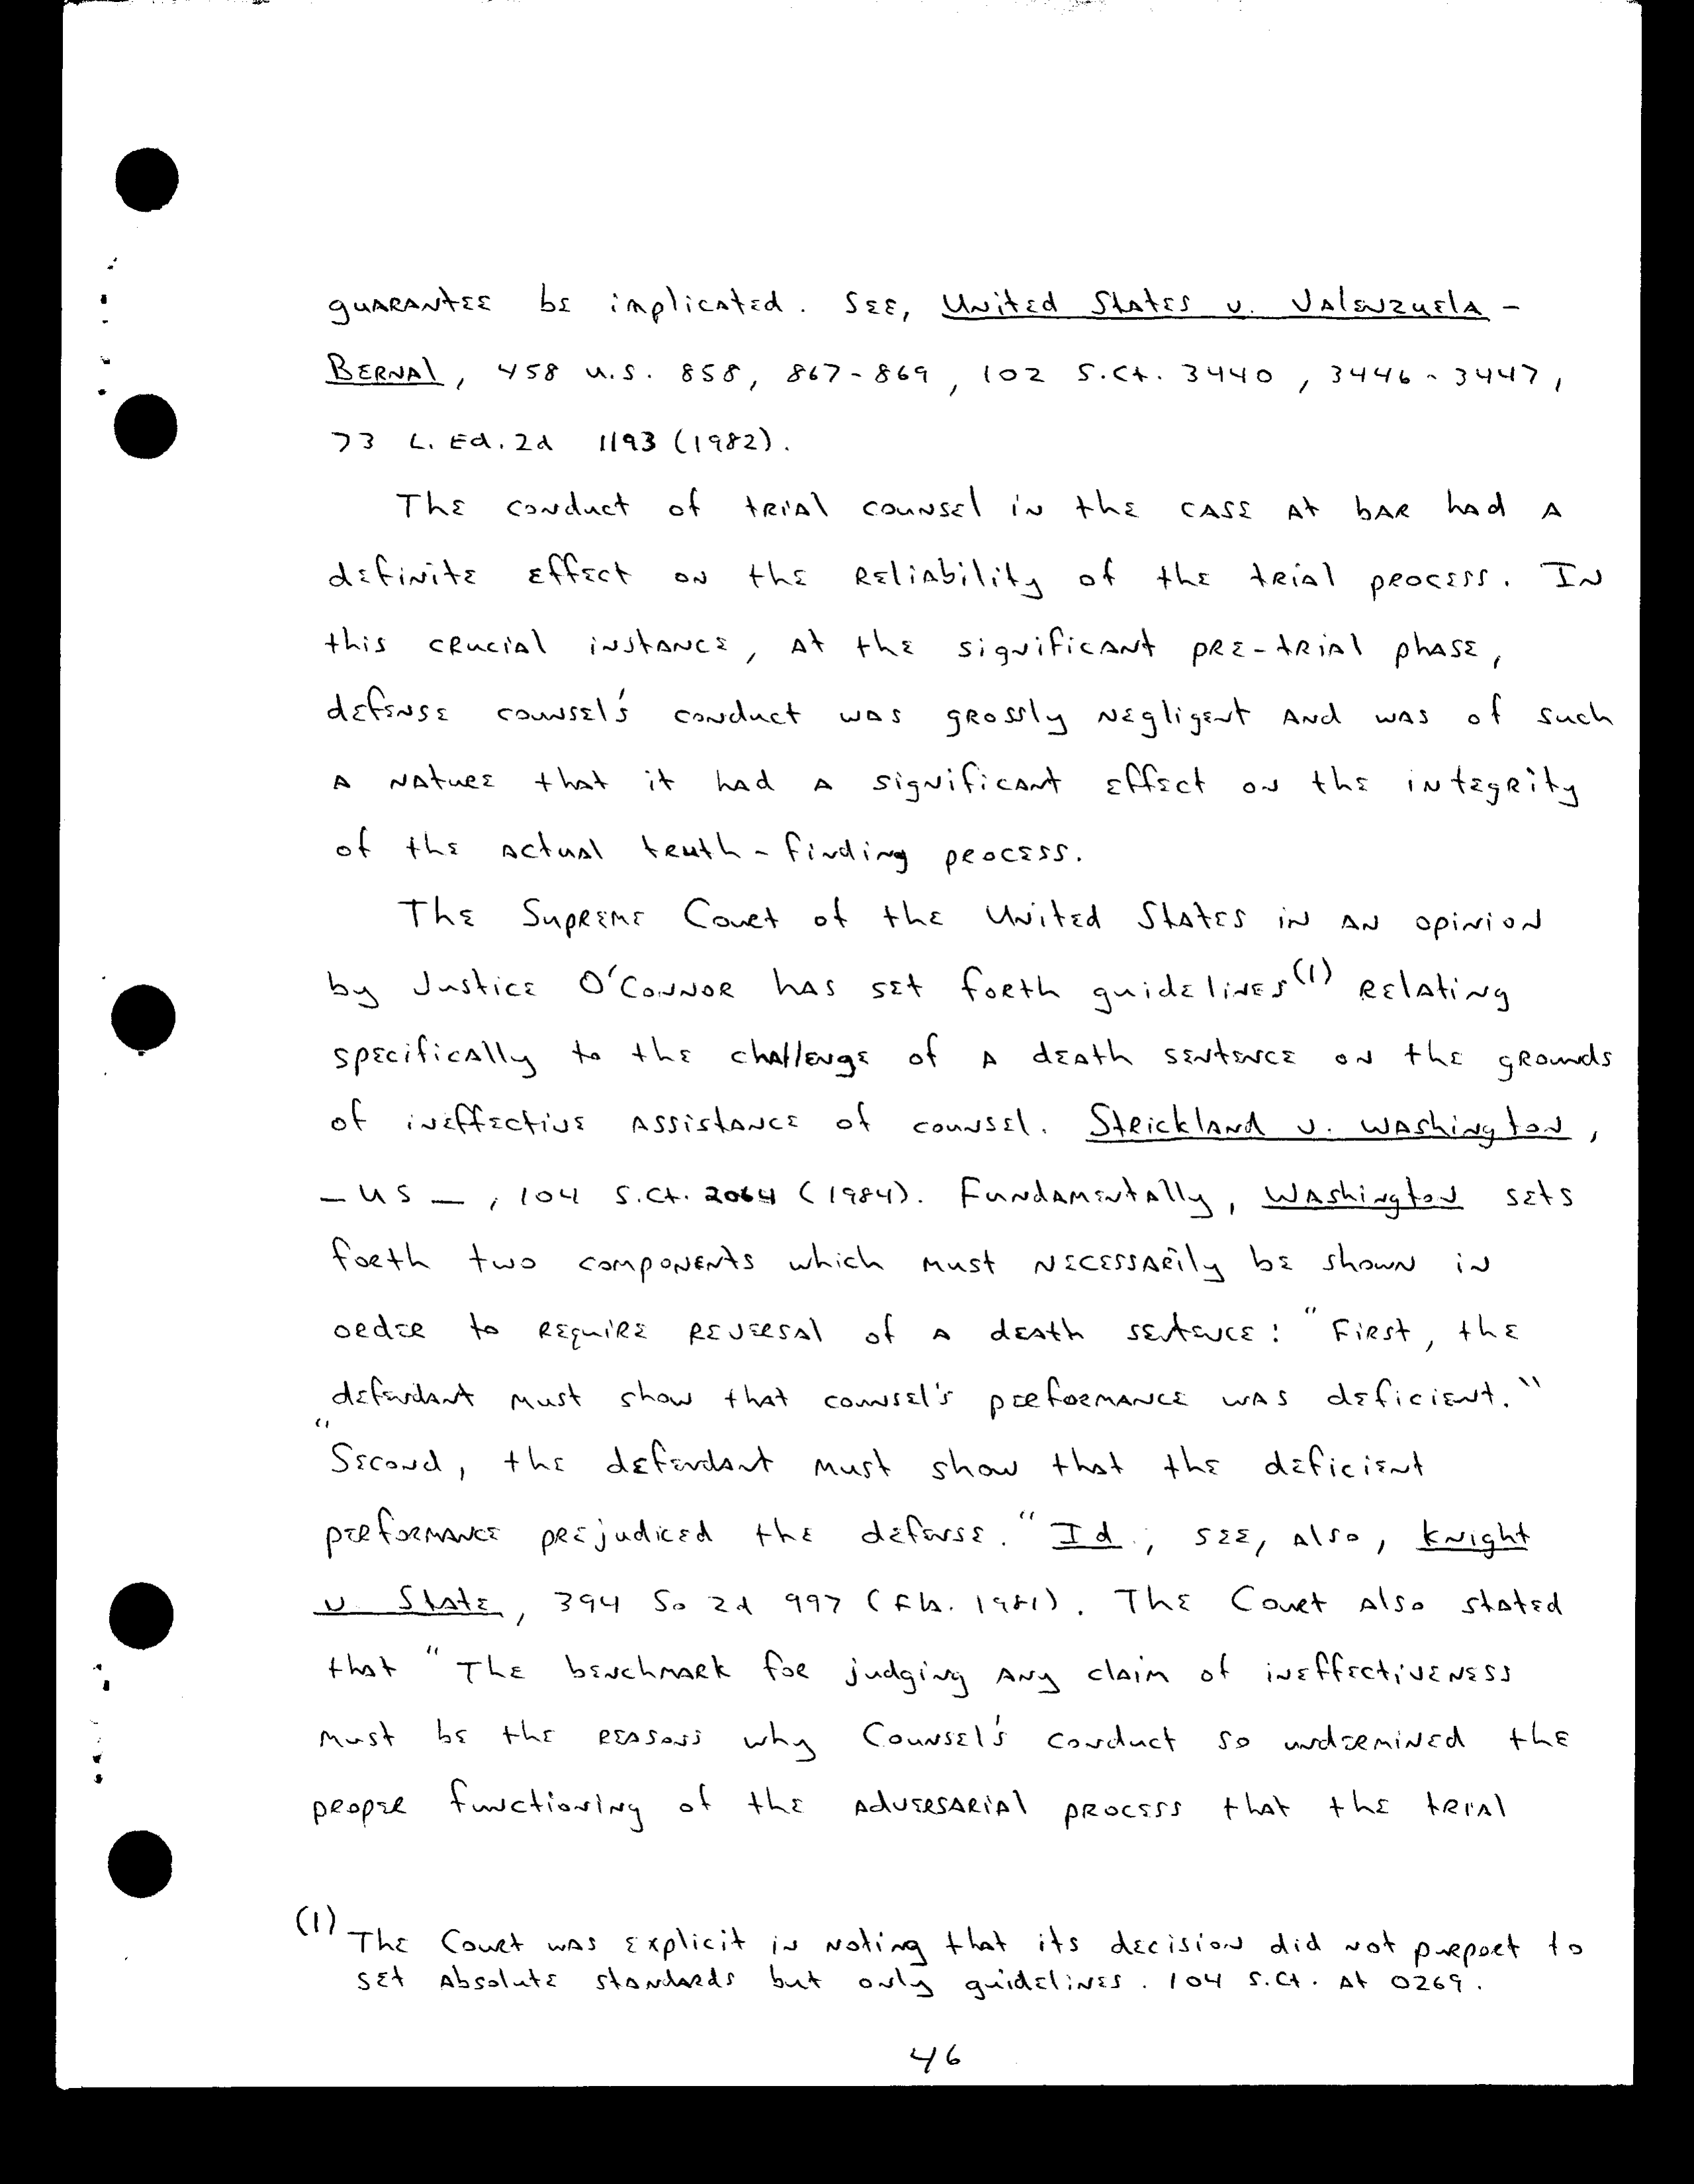 guarantee be implicated. See, United States v. Valenzuela-
Bernal, 458 U.S. 858, 867-869, 102 S.Ct. 3440, 3446-3447,
73 L. Ed. 2d 1193 (1982).
The conduct of trial counsel in the case at bar had a
definite effect on the reliability of the trial process. In
this crucial instance, at the significant pre-trial phase,
defense counsel's conduct was grossly negligent and was of such
a nature that it had a significant effect on the integrity
of the actual truth-finding process.
The Supreme Court of the United States in an opinion
by Justice O'Connor has set forth guidelines(1) relating
specifically to the challenge of a death sentence on the grounds
of ineffective assistance of counsel. Strickland v. Washington,
— US —, 104 S.Ct. 2064 (1984). Fundamentally, Washington sets
forth two components which must necessarily be shown in
order to require reversal of a death sentence: "First, the
defendant must show that counsel's performance was deficient."
"Second, the defendant must show that the deficient
performance prejudiced the defense." Id.; see, also, Knight
v. State, 394 So 2d 997 (Fla. 1981). The Court also stated
that "The benchmark for judging any claim of ineffectiveness
must be the reasons why Counsel's conduct so undermined the
proper functioning of the adversarial process that the trial
(1) The Court was explicit in noting that its decision did not purport to
set absolute standards but only guidelines. 104 S.Ct. at 0269.
46